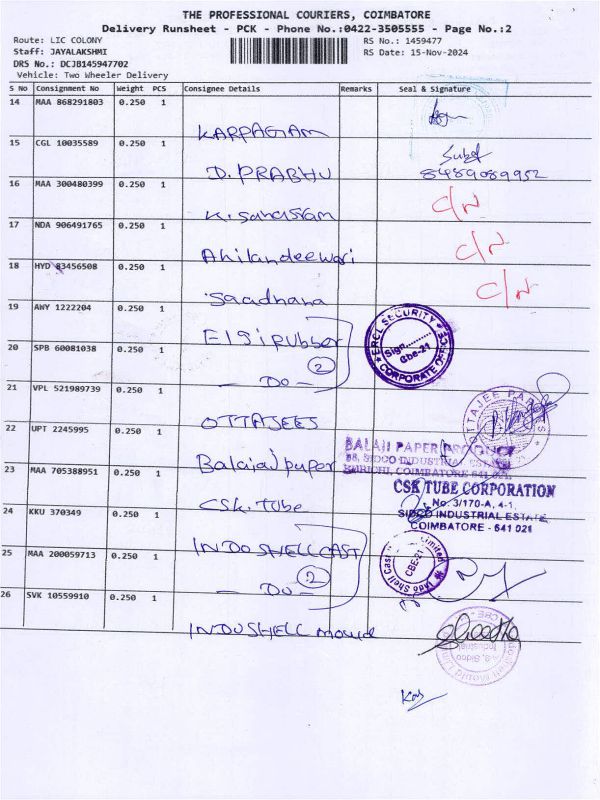 THE PROFESSIONAL COURIERS, COIMBATORE
Delivery Runsheet - PCK - Phone No.:0422-3505555 - Page No.:2
Route: LIC COLONY
RS No.: 1459477
Staff: JAYALAKSHMI
RS Date: 15-Nov-2024
DRS No.: DCJB145947702
Vehicle: Two Wheeler Delivery
S No Consignment No Weight PCS Consignee Details Remarks Seal & Signature
14 MAA 868291803 0.250 1
KARPAGAM
15 CGL 10035589 0.250 1
D. PRABHU
8489089952
16 MAA 300480399 0.250 1
C/N
17 NDA 906491765 0.250 1
Ahilandeewari C/N
18 HYD 83456508 0.250 1
Saadhana C/N
19 AWY 1222204 0.250 1
Elgi rubber
ERCL SECURITY
Sign.........
Cbe-21
CORPORATE OFFICE
20 SPB 60081038 0.250 1
2
— Do —
21 VPL 521989739 0.250 1
OTTAJEES
OTTAJEE PAPERS
22 UPT 2245995 0.250 1
Balajai paper
BALAJI PAPER PRODUCT
SIDCO INDUSTRIAL ESTATE
KURICHI, COIMBATORE 641 021.
23 MAA 705388951 0.250 1
CSK. Tube
CSK TUBE CORPORATION
No. 3/170-A, 4-1,
SIDCO INDUSTRIAL ESTATE
COIMBATORE - 641 021
24 KKU 370349 0.250 1
INDO SHELL CAST
25 MAA 200059713 0.250 1
2
— Do —
Indo Shell Cast
Limited
CBE-21
26 SVK 10559910 0.250 1
INDO SHELL mould